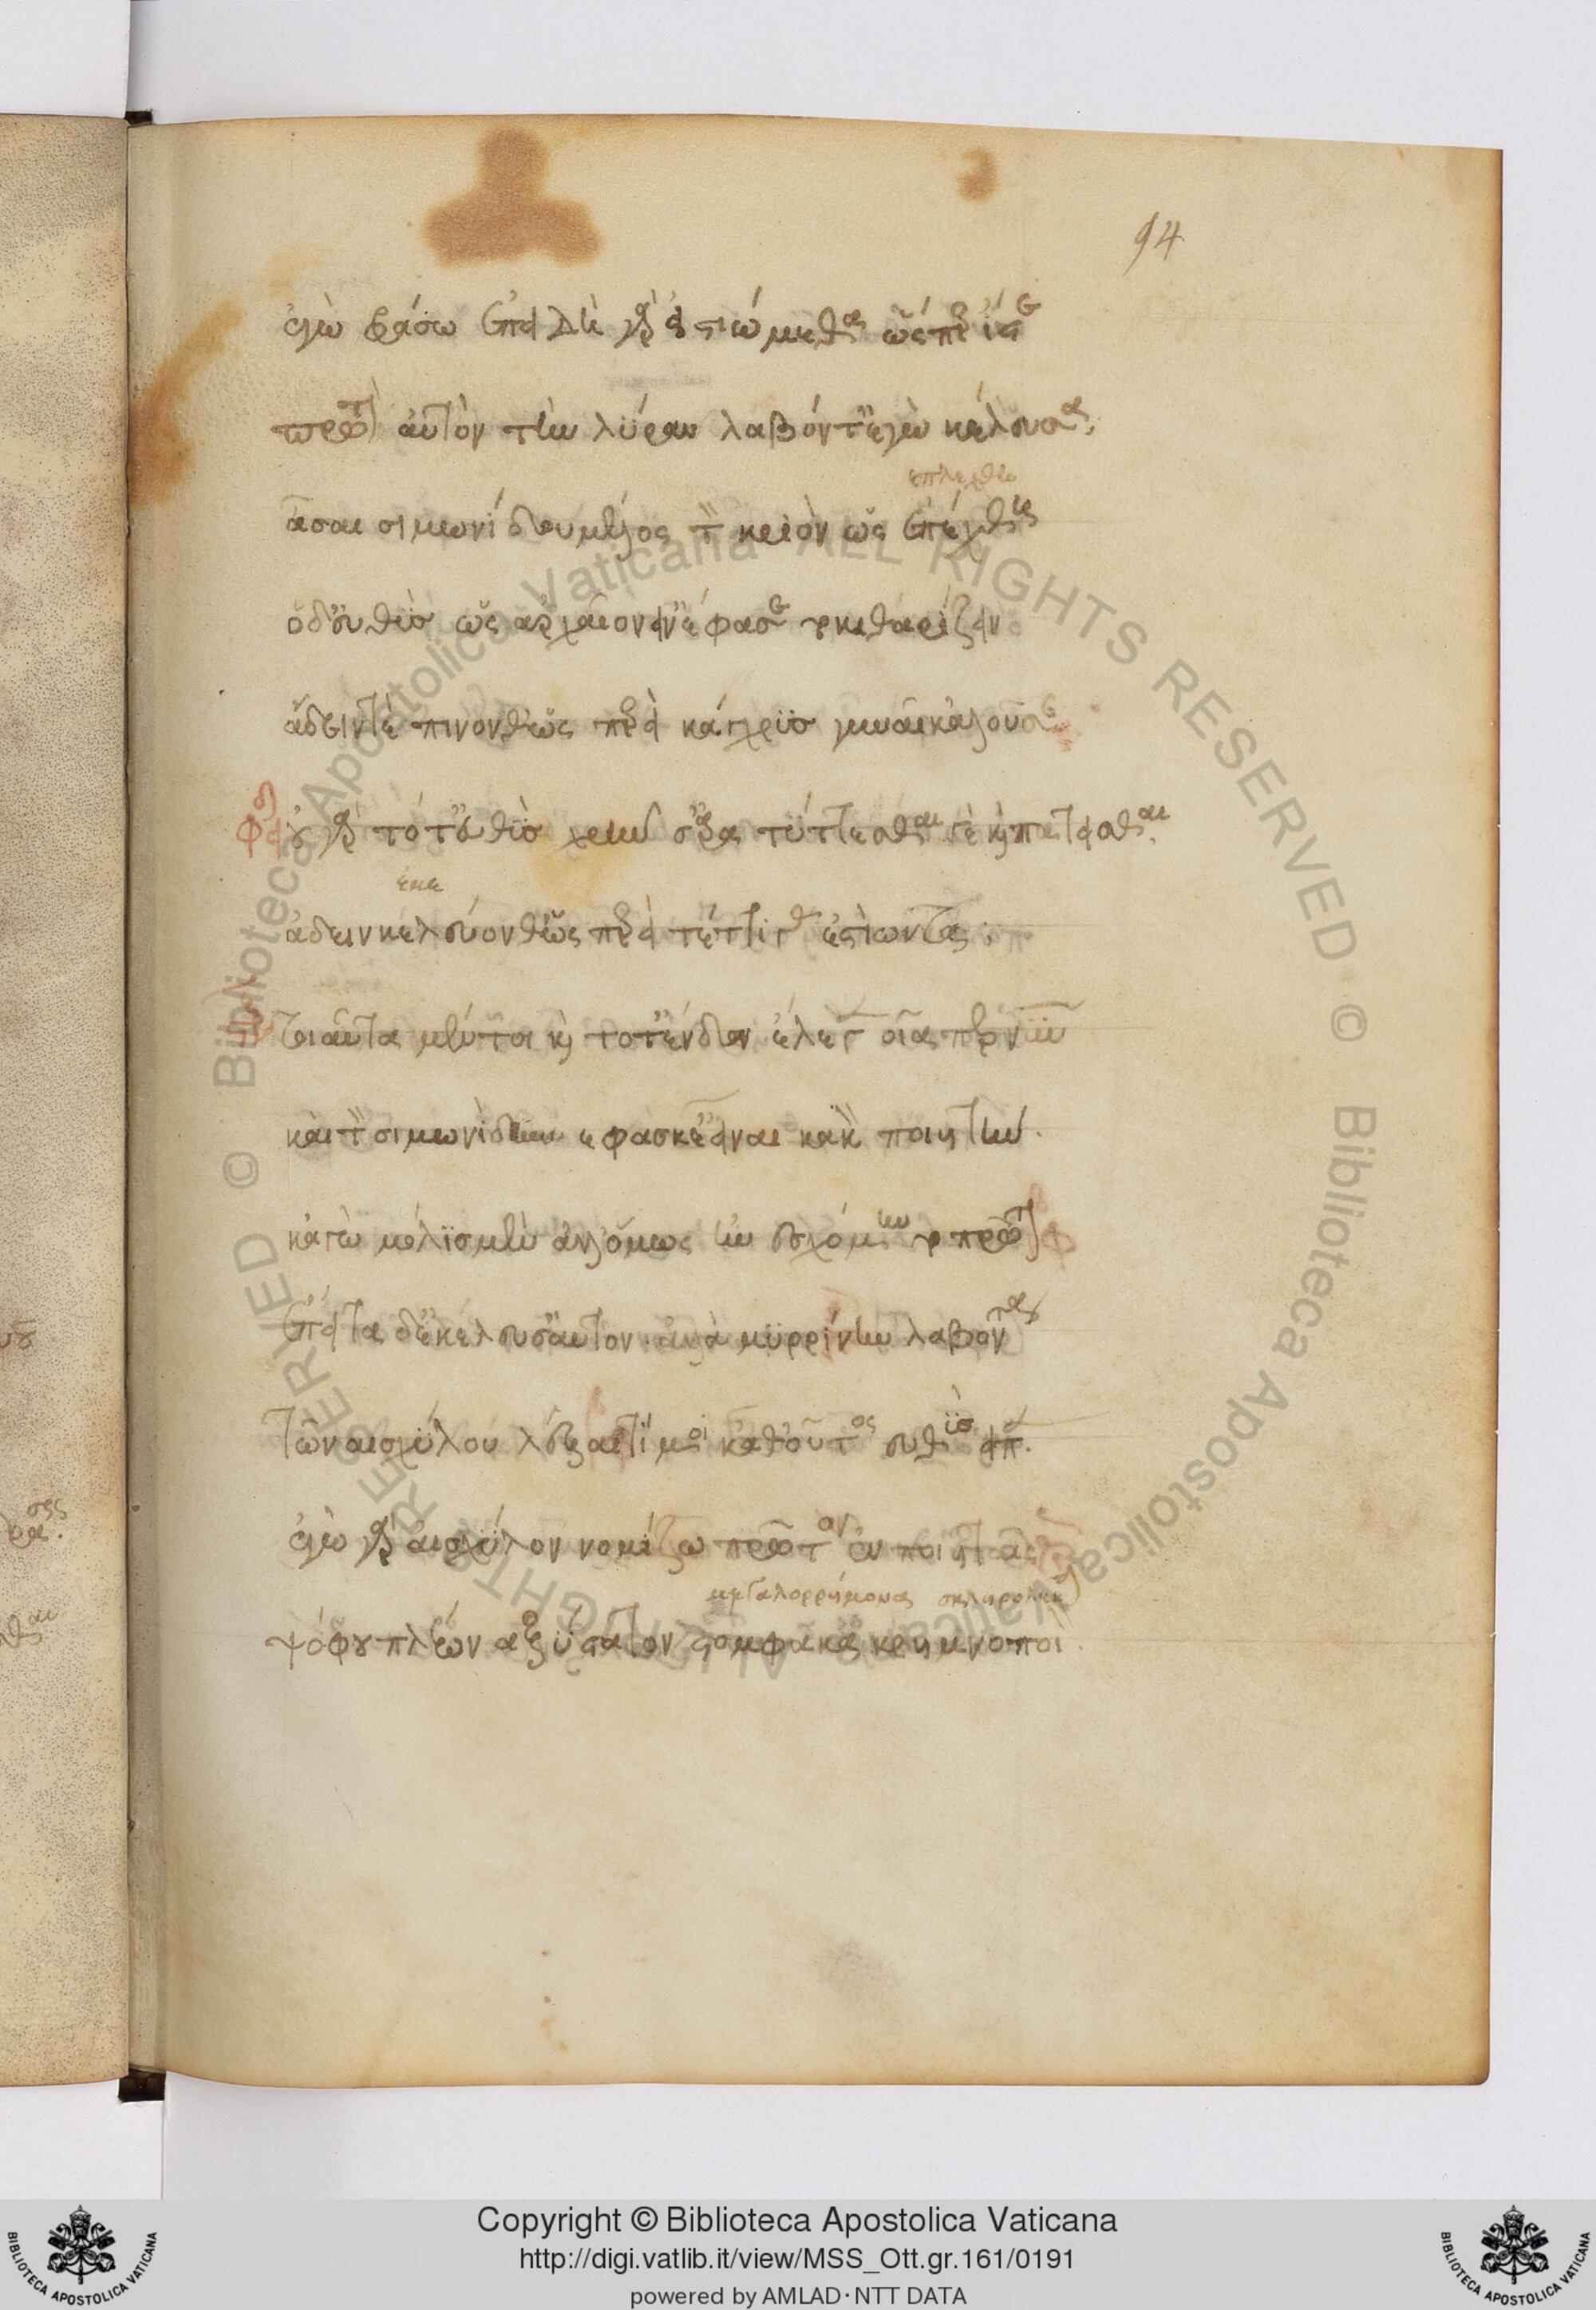 94
ἐγὼ φράσω ἐπειδὴ γὰρ εἱστιώμεθα ὥσπερ ἴστε
πρῶτον αὐτὸν τὴν λύραν λαβόντ' ἐγὼ κέλευσα
ἐπλέχθη
ᾆσαι σιμωνίδου μέλος τὸν κριὸν ὡς ἐπέχθη
ὁ δ' εὐθὺς ὡς ἀρχαῖον εἶν' ἔφασκε τὸ κιθαρίζειν
ᾄδειν τε πίνονθ' ὥσπερεὶ κάχρυς γυναῖκ' ἀλοῦσαν
φει οὐ γὰρ τότ' εὐθὺς χρῆν σ' ἄρα τύπτεσθαί τε καὶ πατεῖσθαι
ᾄδειν κελεύονθ' ὥσπερεὶ τέττιγας ἑστιῶντα
τοιαῦτα μέντοι καὶ τότ' ἔνδον ἔλεγεν οἷάπερ νῦν
καὶ τὸν σιμωνίδην ἔφασκ' εἶναι κακὸν ποιητήν
κἀγὼ μόλις μὲν ἀλλ' ὅμως ἠνεσχόμην τὸ πρῶτον
ἔπειτα δ' ἐκέλευσ' αὐτὸν ἀλλὰ μυρρίνην λαβόντα
τῶν αἰσχύλου λέξαι τί μοι κᾆθ' οὗτος εὐθὺς εἶπεν
ἐγὼ γὰρ αἰσχύλον νομίζω πρῶτον ἐν ποιηταῖς
μεγαλορρήμονα σκληρολόγον
ψόφου πλέων ἀξύστατον στόμφακα κρημνοποιόν
Copyright © Biblioteca Apostolica Vaticana
http://digi.vatlib.it/view/MSS_Ott.gr.161/0191
powered by AMLAD·NTT DATA